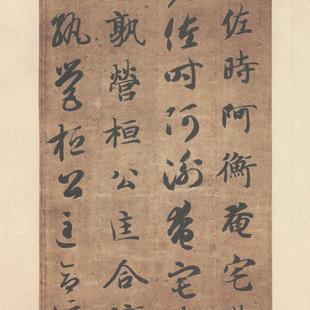 佐時阿衡奄宅
佐時阿衡奄宅
孰營桓公匡合
孰營桓公匡合